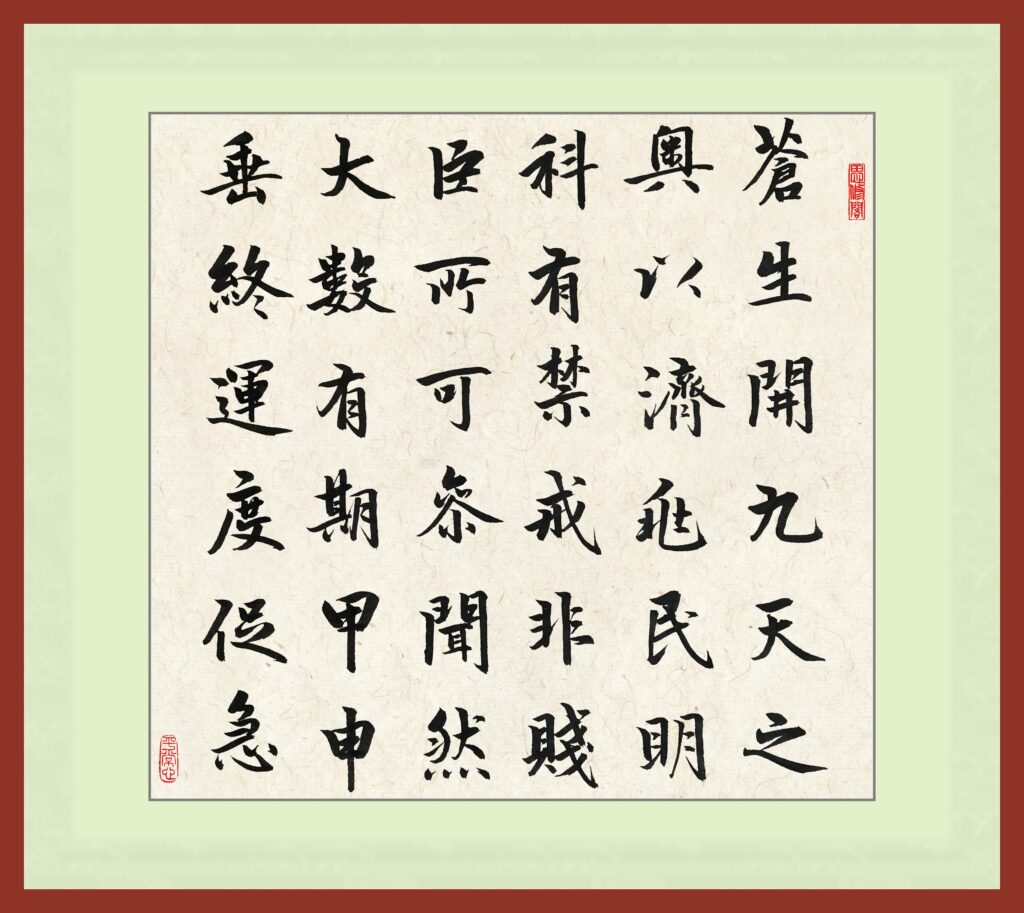 蒼生開九天之
奧以濟兆民明
科有禁戒非賤
臣所可參聞然
大數有期甲申
垂終運度促急
平常心